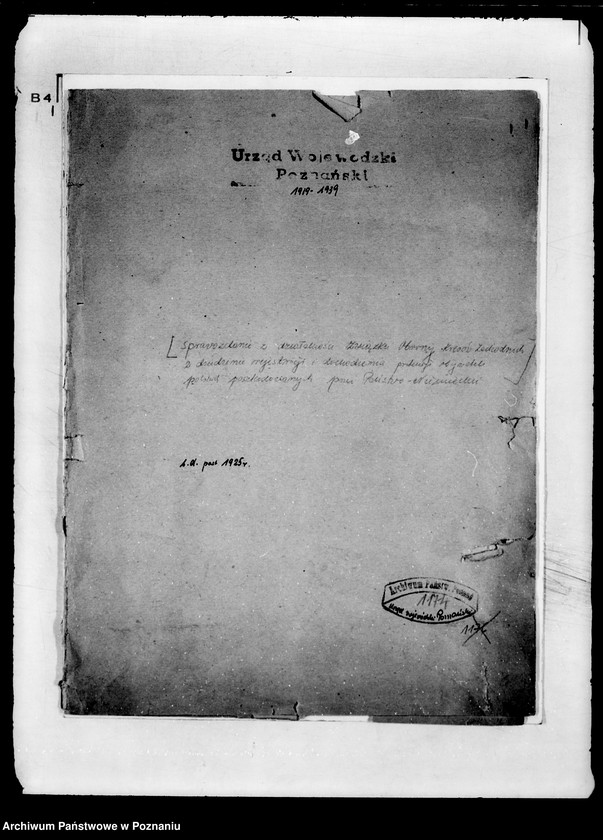 B4
Urząd Wojewódzki
Poznański
1919-1939
[Sprawozdanie z działalności Związku Obrony Kresów Zachodnich
z dziedziny rejestracji i dochodzenia pretensji obywateli
polskich poszkodowanych przez
b.d. post 1925r.
Archiwum Państw. Poznań
1174
Urząd Wojewódzki Poznański
Archiwum Państwowe w Poznaniu